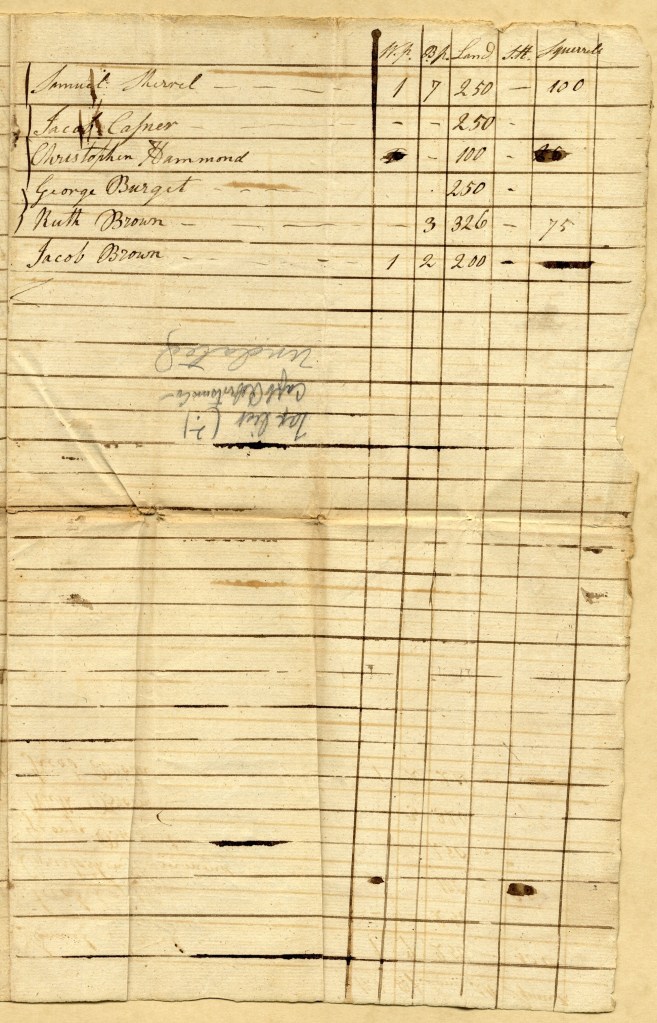 W.P. B.P. Land S.H. Squirrels
Samuel Sherrel — — — — 1 7 250 — 100
Jacob Casner — — — — - - 250 -
Christopher Hammond - 100 -
George Burget - - - . 250 -
Ruth Brown — — — — 3 326 — 75
Jacob Brown - - - - 1 2 200 -
Tax list (?)
Capt
Undated